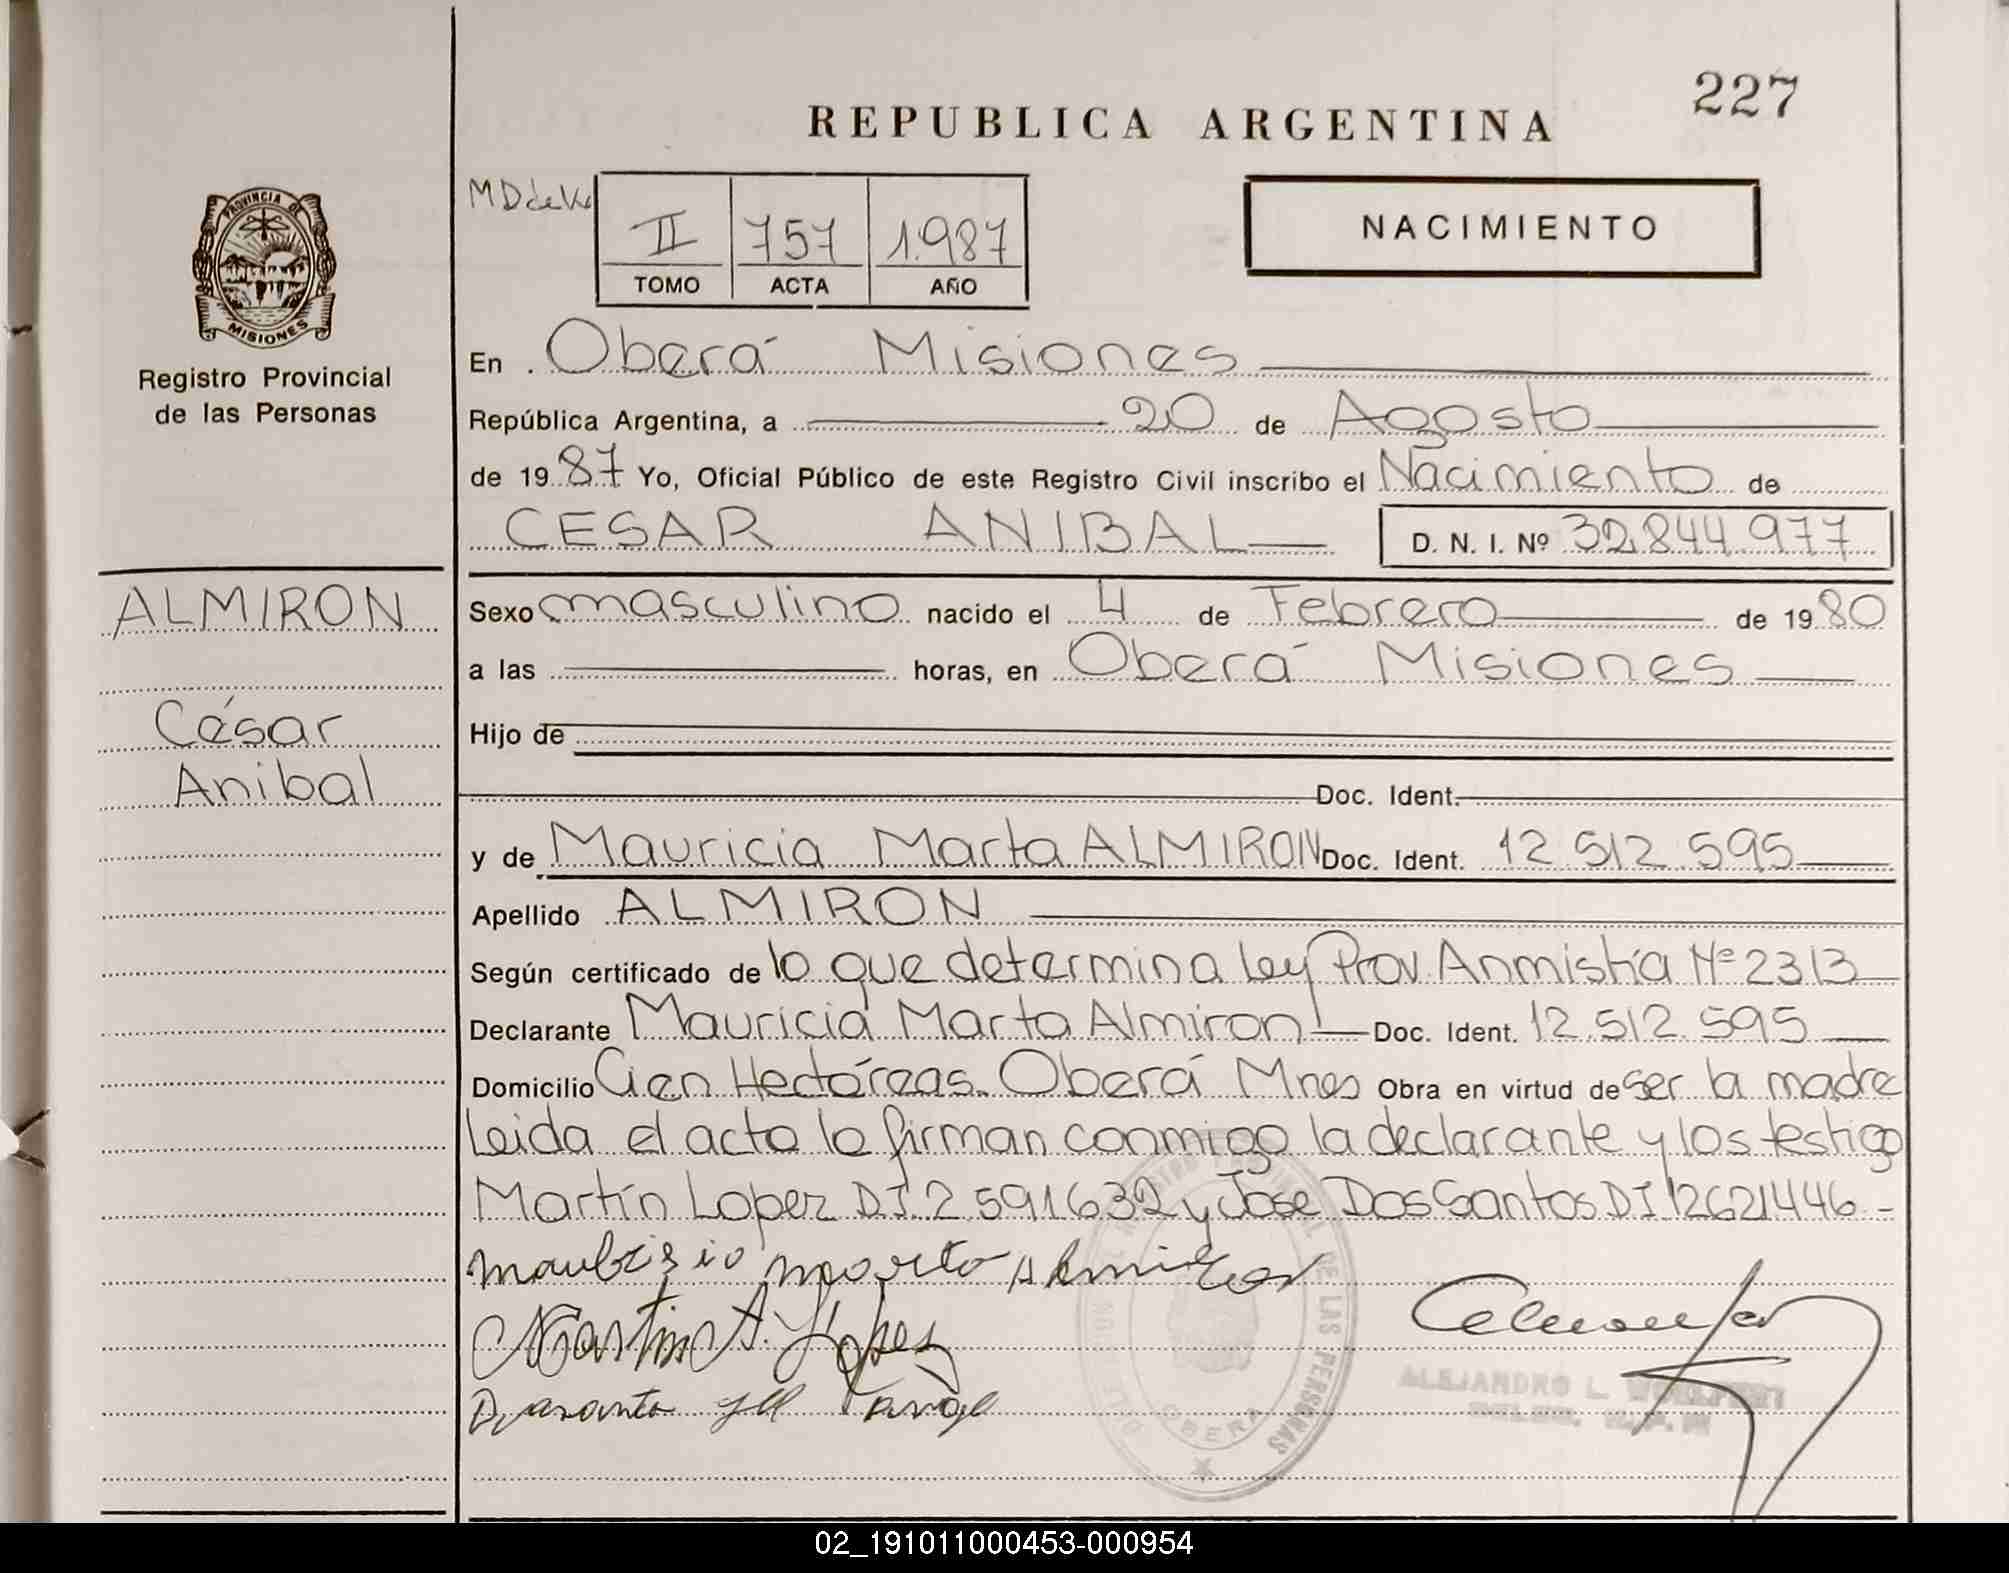 227
REPUBLICA ARGENTINA
PROVINCIA DE
MISIONES
Registro Provincial
de las Personas
II 757 1987
TOMO ACTA AÑO
NACIMIENTO
En Oberá Misiones
República Argentina, a 20 de Agosto
de 1987 Yo, Oficial Público de este Registro Civil inscribo el Nacimiento de
CESAR ANIBAL D. N. I. Nº 32.844.977
ALMIRON
César
Anibal
Sexo masculino nacido el 4 de Febrero de 1980
a las horas, en Oberá Misiones
Hijo de
Doc. Ident.
y de Mauricia Marta ALMIRON Doc. Ident. 12.512.595
Apellido ALMIRON
Según certificado de lo que determina ley Prov. Anmistía Nº 2313
Declarante Mauricia Marta Almiron Doc. Ident. 12.512.595
Domicilio Cien Hectáreas. Oberá Mnes Obra en virtud de ser la madre
Leida el acta la firman conmigo la declarante y los testigo
Martín Lopez D.I. 2.591632 y Jose Dos Santos DI 12621446 -
Martin A. Lopez
DE LAS PERSONAS
OBERA
ALEJANDRO L.
02_191011000453-000954